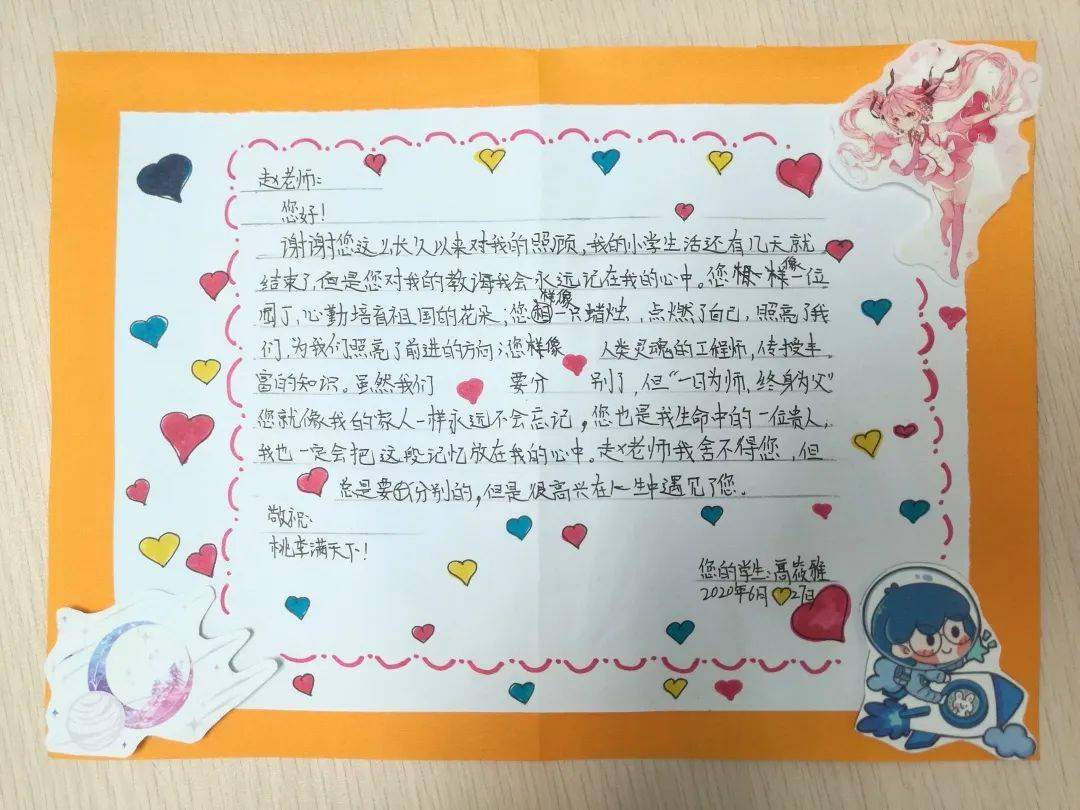 赵老师:
您好!
谢谢您这么长久以来对我的照顾,我的小学生活还有几天就
结束了,但是您对我的教诲我会永远记在我的心中。您一样像一位
园丁,心勤培育祖国的花朵;您样像一只蜡烛,点燃了自己,照亮了我
们,为我们照亮了前进的方向;您样像 人类灵魂的工程师,传授丰
富的知识。虽然我们 要分 别了,但“一日为师,终身为父”
您就像我的家人一样永远不会忘记,您也是我生命中的一位贵人,
我也一定会把这段记忆放在我的心中。赵老师我舍不得您,但
总是要分别的,但是很高兴在人生中遇见了您。
敬祝:
桃李满天下!
您的学生:高筱雅
2020年6月27日